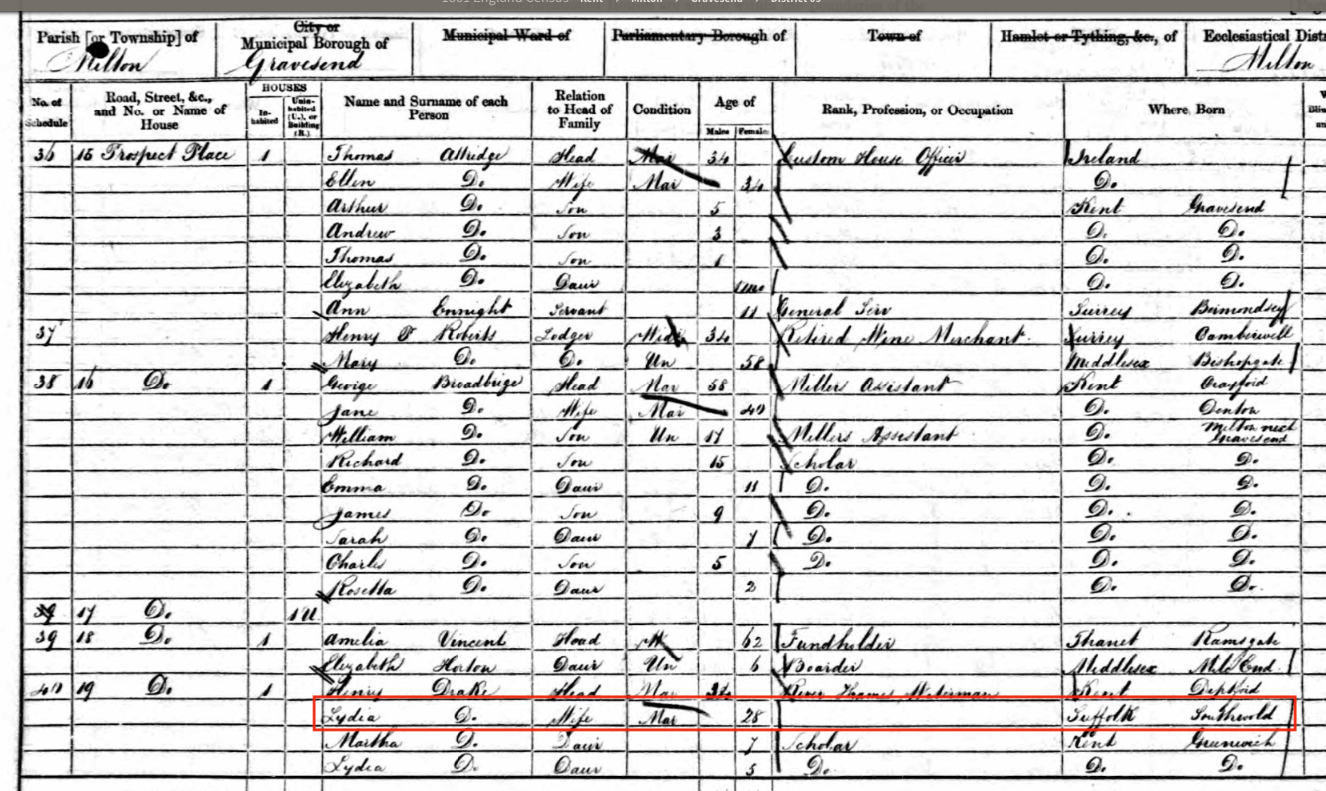 1861 England Census Kent Milton Gravesend District
Parish [or Township] of City or Municipal Borough of Municipal Ward of Parliamentary Borough of Town of Hamlet or Tything, &c., of Ecclesiastical Distr
Milton Gravesend Milton
No. of Schedule Road, Street, &c., and No. or Name of House HOUSES In-habited Unin-habited (U.), or Building (B.) Name and Surname of each Person Relation to Head of Family Condition Age of Males Females Rank, Profession, or Occupation Where Born
36 15 Prospect Place 1 Thomas Head Mar 34 Custom House Officer Ireland
Ellen Do. Wife Mar 34 Do.
Arthur Do. Son 5 Kent Gravesend
Andrew Do. Son 3 Do. Do.
Thomas Do. Son 1 Do. Do.
Elizabeth Do. Daur 1mo Do. Do.
Ann Ennight Servant 11 General Serv Surrey Bermondsey
37 Henry Roberts Lodger 34 Retired Wine Merchant Surrey Camberwell
Mary Do. Do. Un 58 Middlesex Bishopgate
38 16 Do. 1 George Broadbrige Head Mar 58 Millers Assistant Kent Crayford
Jane Do. Wife Mar 49 Do. Denton
William Do. Son Un 17 Millers Assistant Do. Milton next Gravesend
Richard Do. Son 15 Scholar Do. Do.
Emma Do. Daur 11 Do. Do. Do.
James Do. Son 9 Do. Do. Do.
Sarah Do. Daur 7 Do. Do. Do.
Charles Do. Son 5 Do. Do. Do.
Rosetta Do. Daur 2 Do. Do.
39 17 Do. 1U
39 18 Do. 1 Amelia Vincent Head 62 Fundholder Thanet Ramsgate
Elizabeth Horton Daur Un 6 Boarder Middlesex Mile End
40 19 Do. 1 Henry Drake Head Mar River Thames Waterman Kent Deptford
Lydia Do. Wife Mar 28 Suffolk Southwold
Martha Do. Daur 7 Scholar Kent Greenwich
Lydia Do. Daur 5 Do. Do. Do.